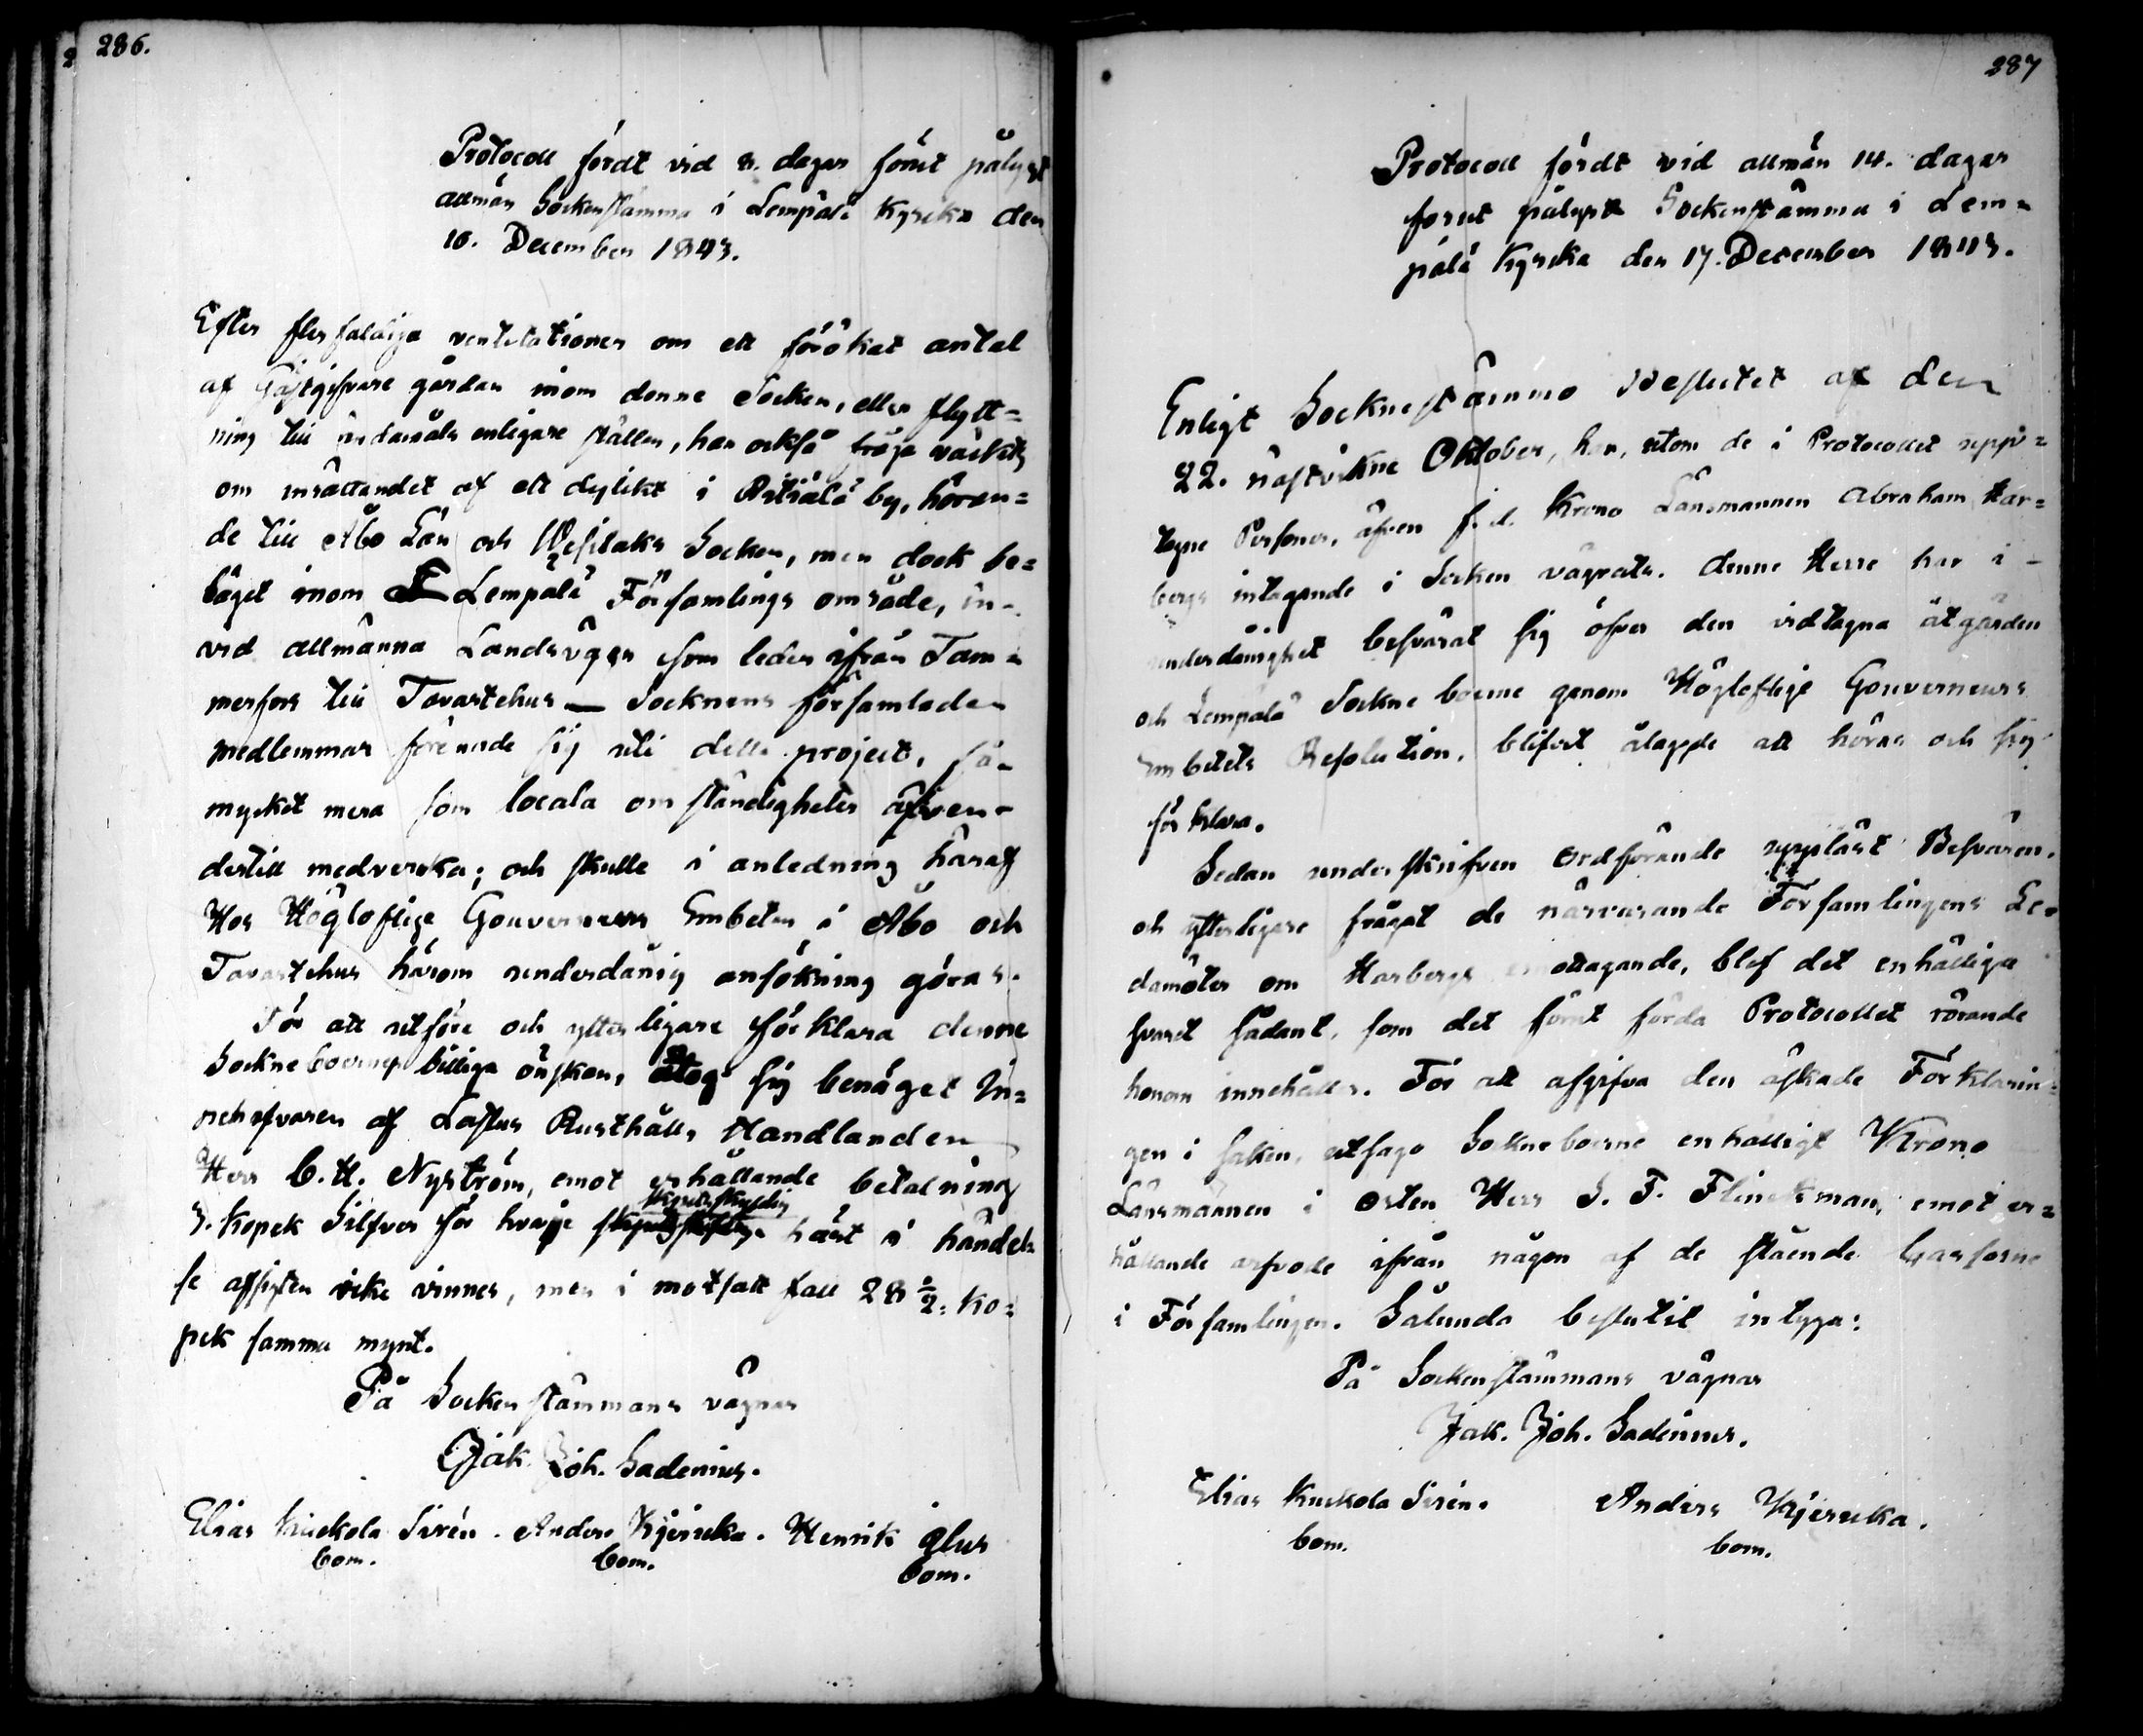 286.
Protocoll fördt vid 8. dagar förut pålyst
allmän Sockenstämma i Lempälä Kyrka den
10. December 1843.
Efter flerfaldiga ventilationer om ett förökat antal
af Gästgifvare gårdar inom denne Socken, eller flytt=
ning till ändamåls enligare ställen, har också fråga väckts
om inrättandet af ett dylikt i by, höran=
de till Åbo Län och Wesilaks Socken, men dock be=
läget inom Lempälä Församlings område, in-
vid allmänna Landsvägen som leder ifrån Tam=
merfors till Tavastehus — Socknens församlade
medlemmar förenade sig uti detta project, så-
mycket mera som locala omständigheter äfven-
dertill medverka; och skulle i anledning häraf
Hos Högloflige Gouverneurs Embeten i Åbo och
Tavastehus härom underdånig ansökning göras.
För att utföra och ytterligare förklara denne
Sockneboernes billiga önskan, åtog sig benäget In=
nehafvaren af Lastus Rusthålls Handlanden
Herr C. H. Nyström, emot erhållande betalning
3. Kopek Silfver för hvarje skattskyldig häst i händel=
se affigten icke vinnes, men i motsatt fall 28 1/2: Ko=
pek samma mynt.
På Sockenstämmans vägnar
Jak. Joh. Sadenius.
Elias Kuckola Sirén. Anders Kjerucka. Henrik
bom. bom. bom.
287
Protocoll fördt vid allmän 14. dagar
förut pålyst Sockenstämma i Lem=
pälä Kyrka den 17. December 1843.
Enligt Socknestämmo Beslutet af den
22. nästvikne Oktober, har, utom de i Protocollet upp=
tagne Personer, äfven f. d. Krono Länsmannen Abraham Har=
bergs intagande i Socken vägrats. Denne Herre har i
underdånighet besvärat sig öfver den vidtagna åtgärden
och Lempälä Sockne boerne genom Högloflige Gouverneurs
Embetets Resolution, blifvit ålagde att höras och sig
förklara.
Sedan underskrifven Ordförande uppläst Besvären.
och ytterligare frågat de närvarande Församlingens Le=
damöter om Harbergs emottagande, blef det enhälliga
svaret sådant, som det förut förda Protocollet rörande
honom innehåller. För att afgifva den äskade Förklarin=
gen i saken, utsågo Sockneboerne enhälligt Krono
Länsmannen i Orten Herr S. F. Flinckman, emot er=
hållande arfvode ifrån någon af de stående Cassorne
i Församlingen. Sålunda beslutit intyga:
På Sockenstämmans vägnar
Jak. Joh. Sadenius.
Elias Kuckola Sirén. Anders Kjerucka.
bom. bom.